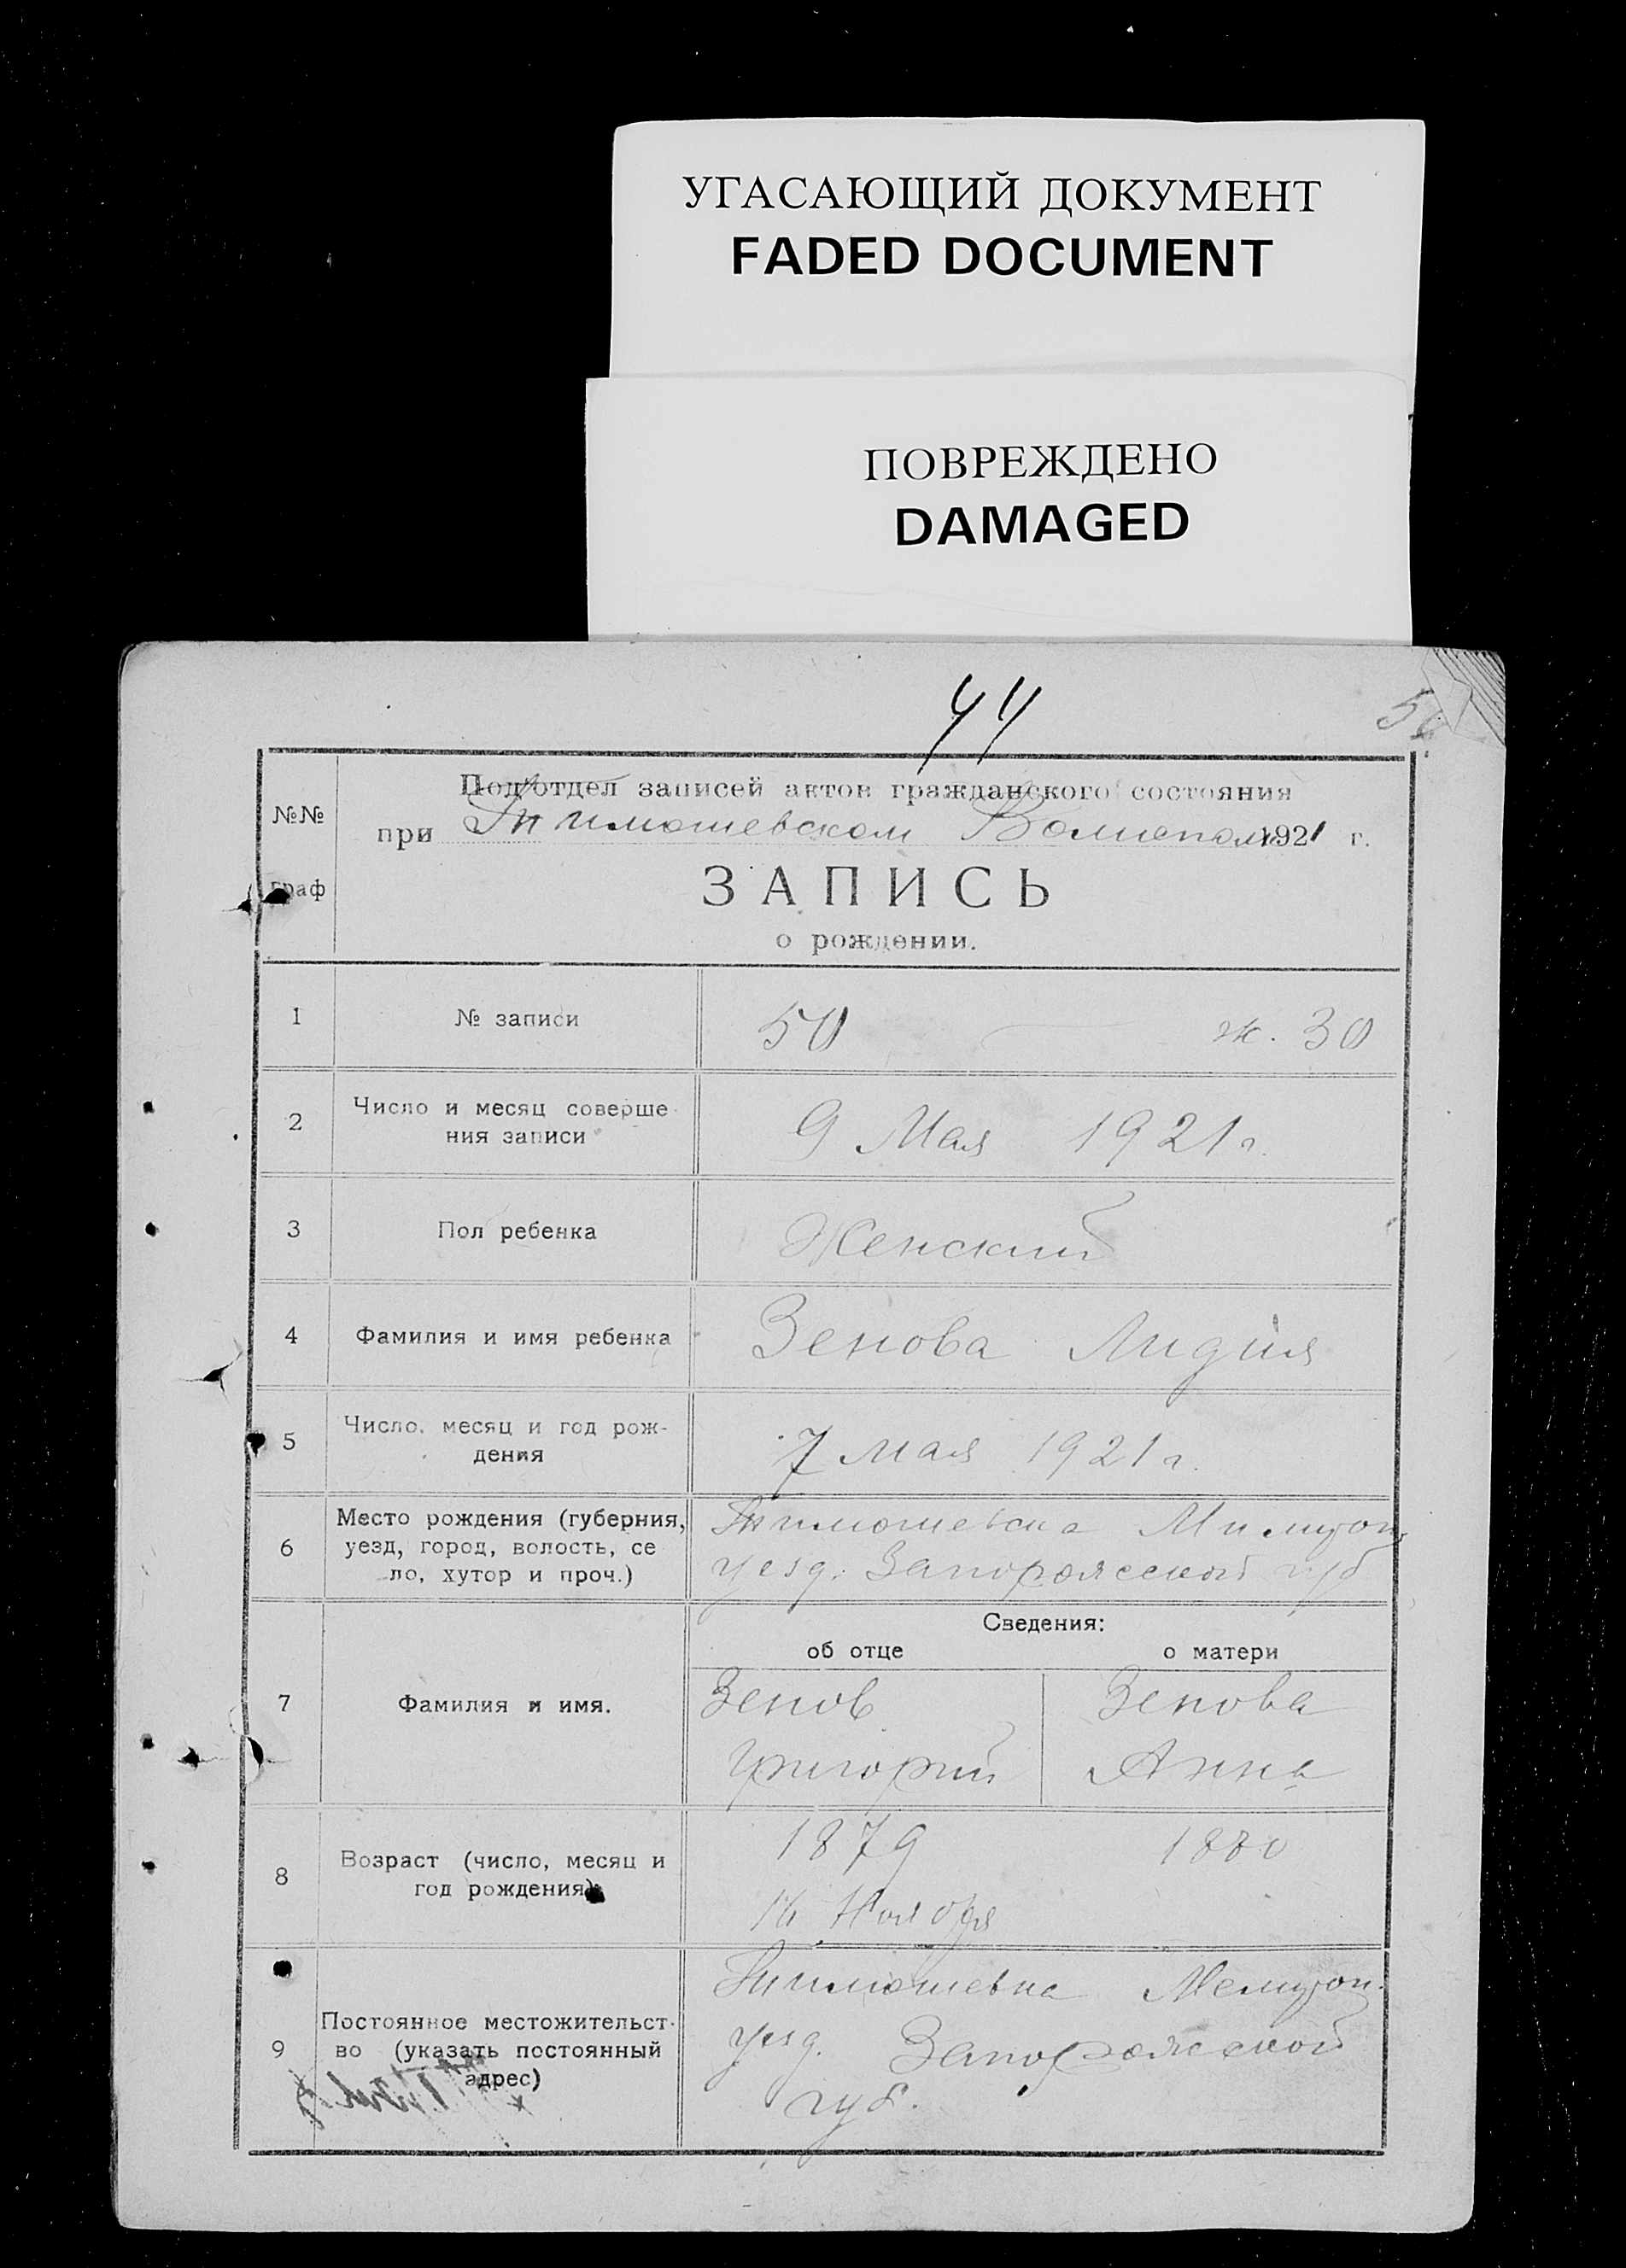 УГАСАЮЩИЙ ДОКУМЕНТ
FADED DOCUMENT
ПОВРЕЖДЕНО
DAMAGED
44
№№
граф
Подотдел записей актов гражданского состояния
при Тимошевском 1921 г.
ЗАПИСЬ
о рождении.
1 № записи 50 ж. 30
2 Число и месяц соверше
ния записи 9 Мая 1921 г.
3 Пол ребенка Женский
4 Фамилия и имя ребенка Зенова Лидия
5 Число, месяц и год рож-
дения 7 мая 1921 г.
6 Место рождения (губерния,
уезд, город, волость, се
ло, хутор и проч.)
Тимошевка
уезд. Запорожской губ
Сведения:
об отце о матери
7 Фамилия и имя.
Зенов Зенова
Григорий Анна
8 Возраст (число, месяц и
год рождения)
1879 1880
Ноября
9 Постоянное местожительст-
во (указать постоянный
адрес)
Тимошевка Мелитоп.
уезд. Запорожской
губ.